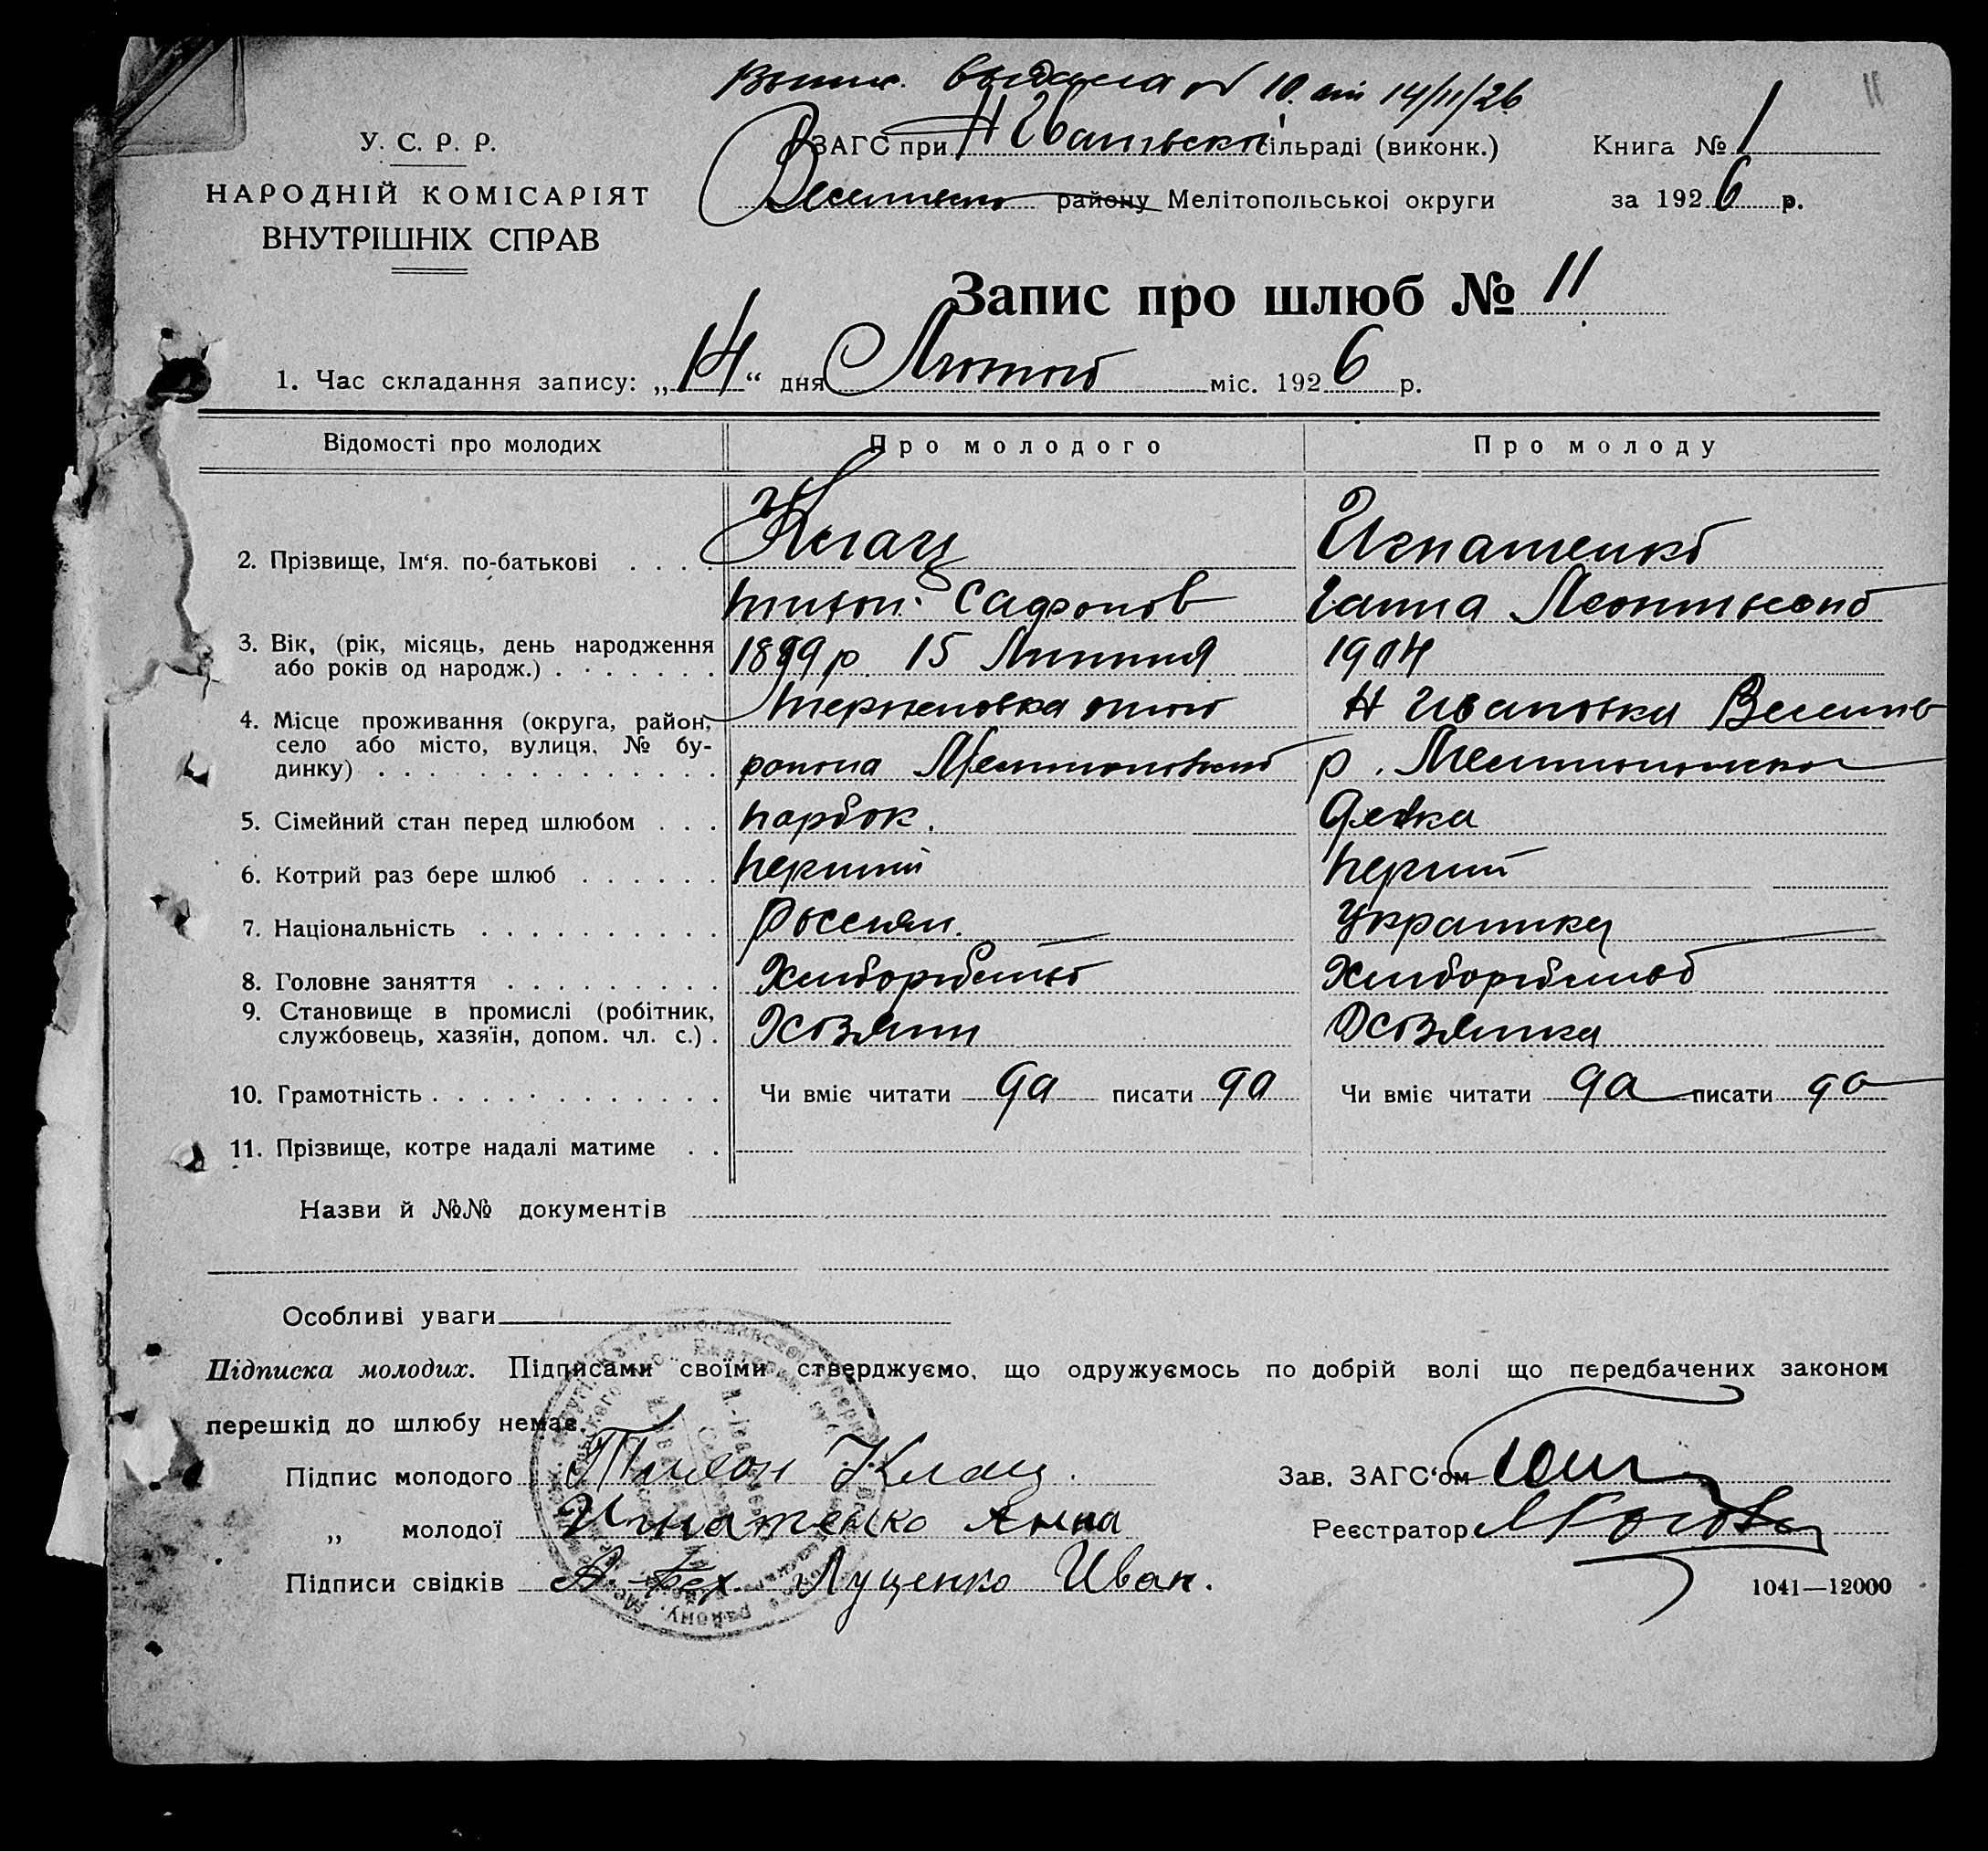 выдана № 10 14/II/26
11
У. С. Р. Р.
НАРОДНІЙ КОМІСАРІЯТ
ВНУТРІШНІХ СПРАВ
ЗАГС при Н Ивановский сільраді (виконк.)
району Мелітопольської округи
Книга № 1
за 1926 р.
Запис про шлюб № 11
1. Час складання запису: „14“ дня Лютого міс. 1926 р.
Відомості про молодих
Про молодого
Про молоду
2. Прізвище, Ім‘я. по-батькові
Клац
Тихон Сафонов
Игнатенко
Ганна Леонтьевно
3. Вік, (рік, місяць, день народження
або років од народж.)
1899 р 15 Липня
1904
4. Місце проживання (округа, район,
село або місто, вулиця, № бу-
динку)
Терпеновка того
района
Н Ивановка
р.
5. Сімейний стан перед шлюбом
парбок.
Девка
6. Котрий раз бере шлюб
перший
перший
7. Національність
Россиян.
Украинка
8. Головне заняття
Хлиборобство
Хлиборобство
9. Становище в промислі (робітник,
службовець, хазяїн, допом. чл. с.)
Хозяин
Хозяинка
10. Грамотність
Чи вміє читати да писати да
Чи вміє читати да писати да
11. Прізвище, котре надалі матиме
Назви й №№ документів
Особливі уваги
Підписка молодих. Підписами своїми стверджуємо, що одружуємось по добрій волі що передбачених законом
перешкід до шлюбу немає.
Підпис молодого Тихон Клац.
„ молодої Игнатенко Анна
Підписи свідків Луценко Иван.
Зав. ЗАГС‘ом
Реєстратор
1041—12000